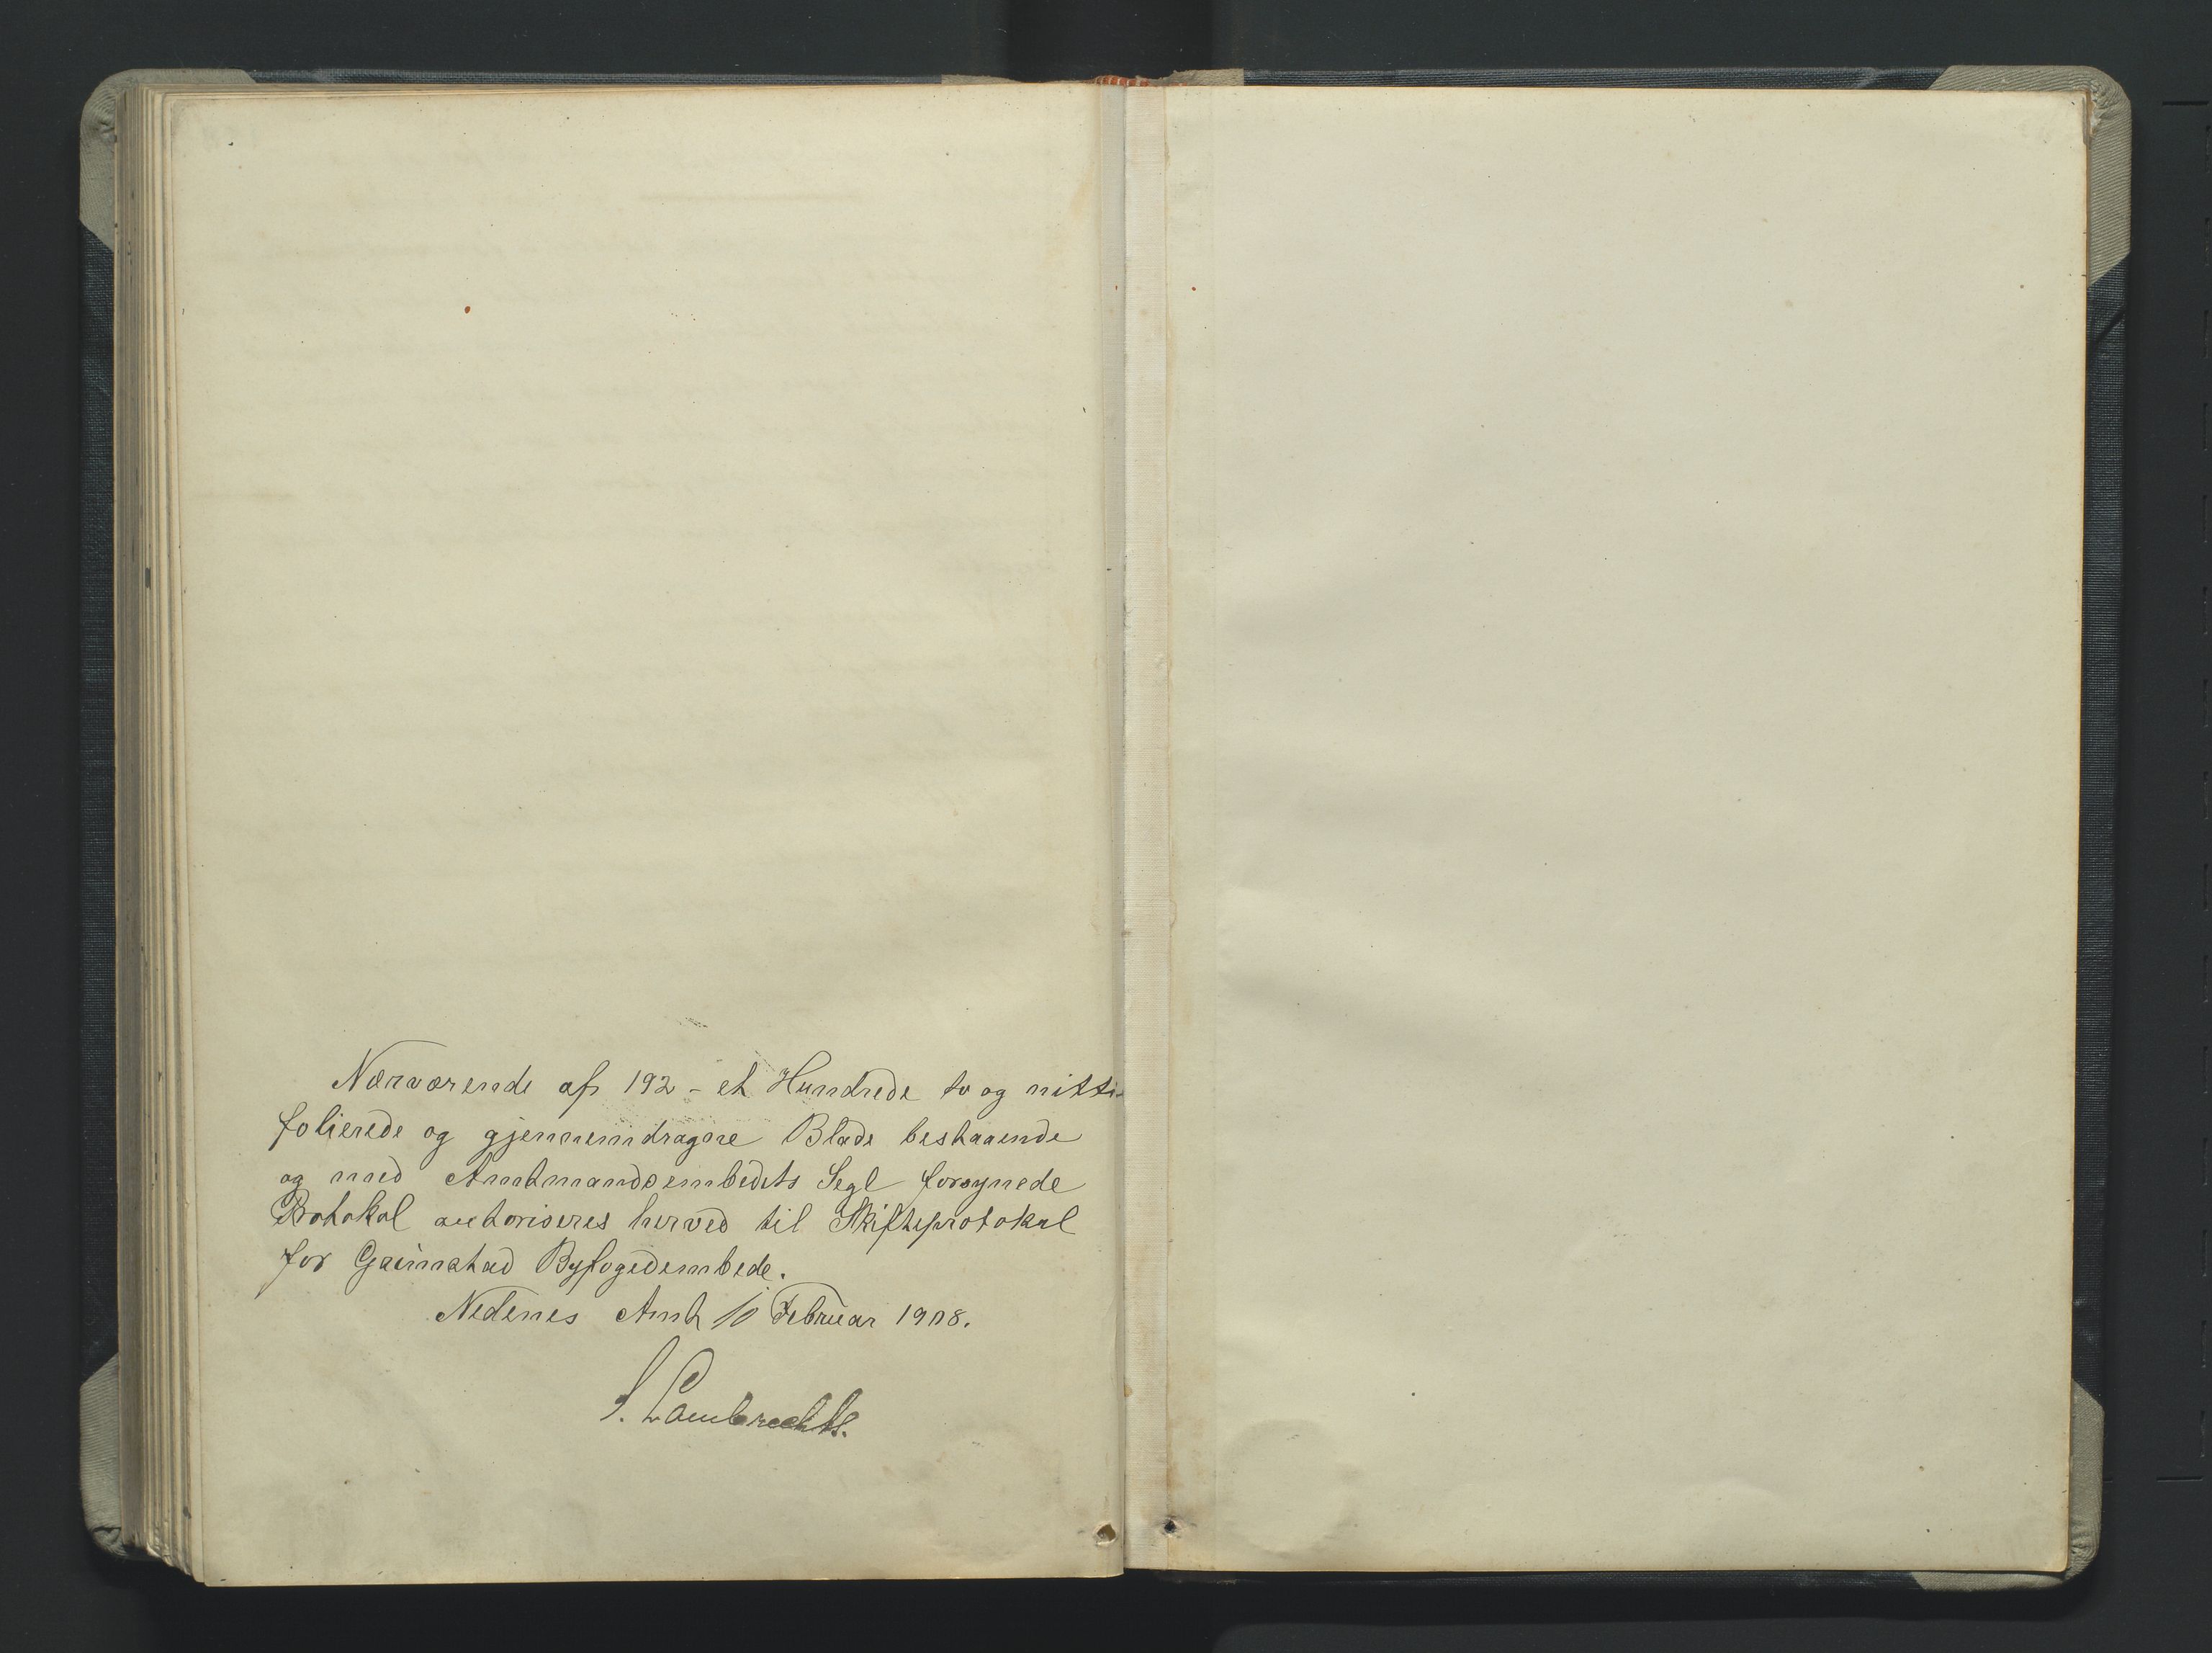 Nærværende af 192 - et Hundrede to og nitti-
folierede og gjennemdragne Blade bestaaende
og med Amtmandsembedets Segl forsynede
Protokol autoriseres herved til Skifteprotokol
for Grimstad Byfogedembede.
Nedenes Amt 10 Februar 1908.
S. Lambrechts.